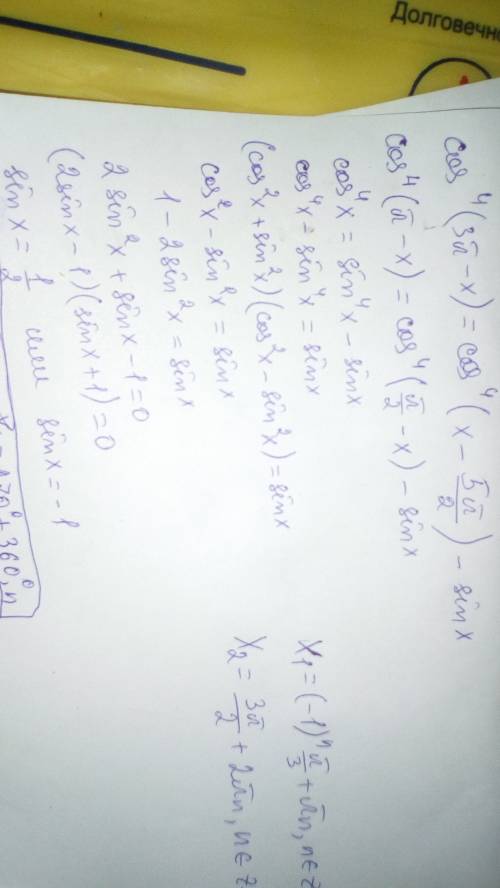 Долговечн
cos⁴(3π-x) = cos⁴(x - 5π/2) - sin x
cos⁴(π-x) = cos⁴(π/2 - x) - sin x
cos⁴x = sin⁴x - sin x
cos⁴x = sin⁴x = sin x
(cos²x + sin²x)(cos²x - sin²x) = sin x
cos²x - sin²x = sin x
1 - 2sin²x = sin x
2 sin²x + sin x - 1 = 0
(2sin x - 1)(sin x + 1) = 0
sin x = 1/2 или sin x = -1
270° + 360°n
x₁ = (-1)ⁿ π/3 + πn, n∈z
x₂ = 3π/2 + 2πn, n∈z